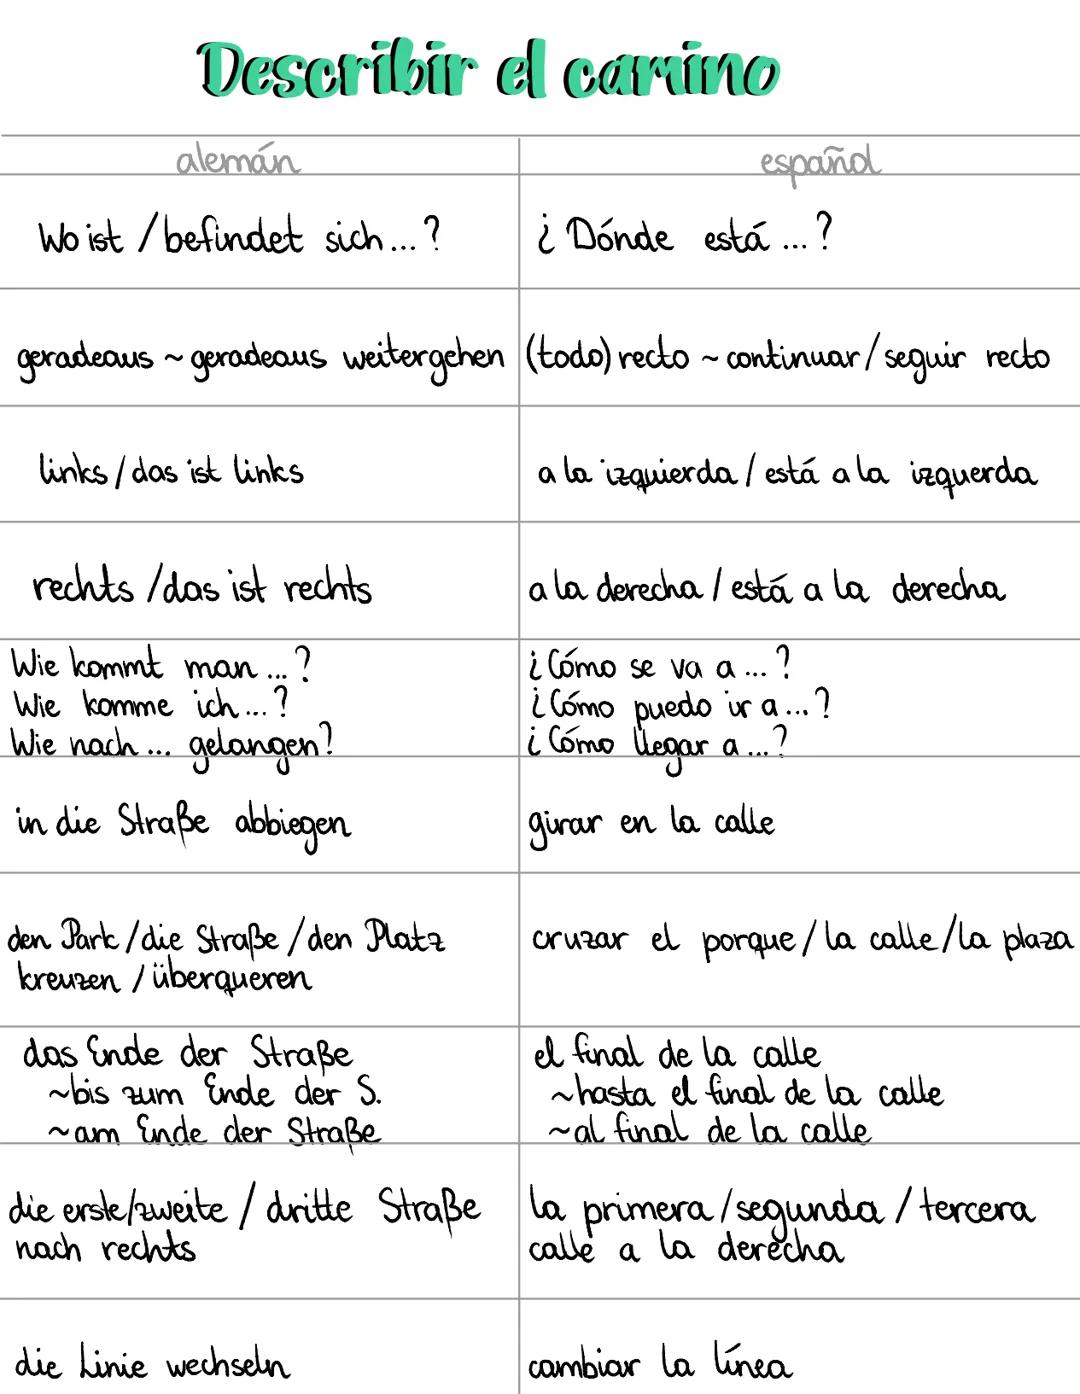 Describir el camino
alemán español
Wo ist / befindet sich ... ? ¿ Dónde está ... ?
geradeaus ~ geradeaus weitergehen (todo) recto ~ continuar / seguir recto
links / das ist links a la izquierda / está a la izquerda
rechts / das ist rechts a la derecha / está a la derecha
Wie kommt man ... ?
Wie komme ich ... ?
Wie nach ... gelangen?
¿ Cómo se va a ... ?
¿ Cómo puedo ir a ... ?
¿ Cómo llegar a ... ?
in die Straße abbiegen girar en la calle
den Park / die Straße / den Platz
kreuzen / überqueren
cruzar el porque / la calle / la plaza
das Ende der Straße
~ bis zum Ende der S.
~ am Ende der Straße
el final de la calle
~ hasta el final de la calle
~ al final de la calle
die erste / zweite / dritte Straße
nach rechts
la primera / segunda / tercera
calle a la derecha
die Linie wechseln cambiar la línea